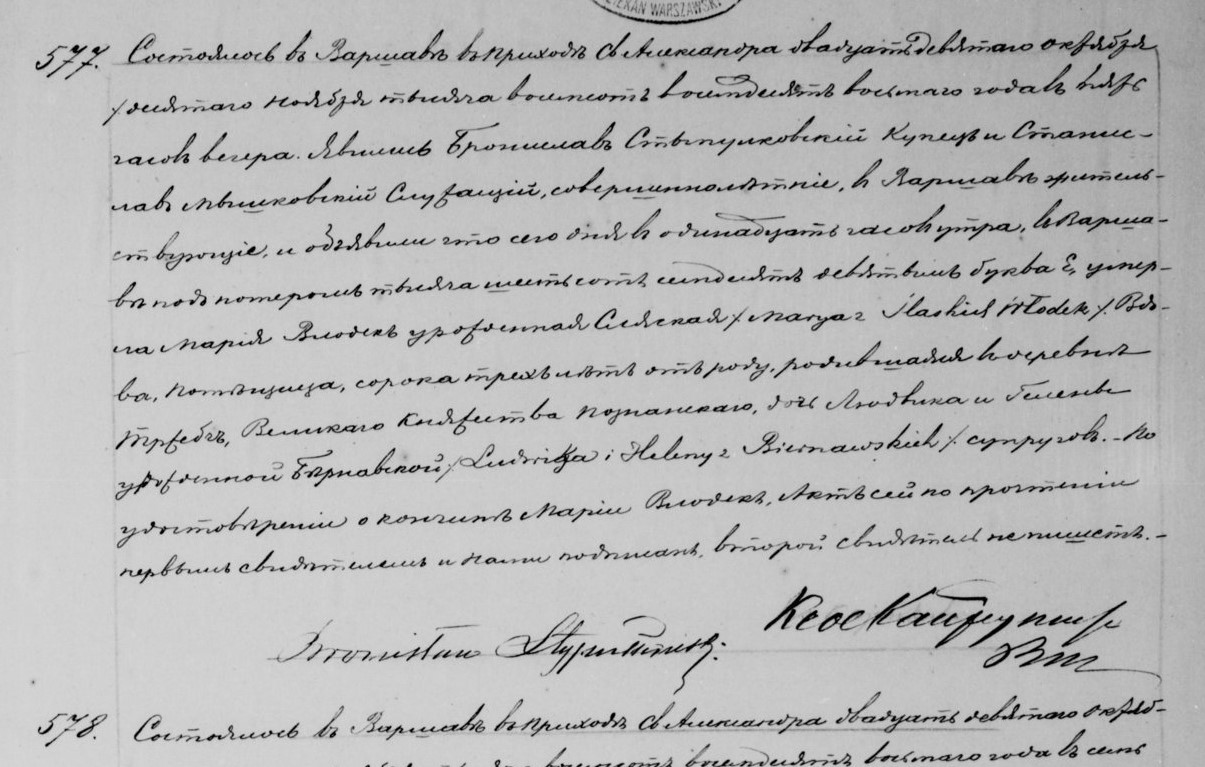 DZIEKAN WARSZAWSKI
577. Состоялось въ Варшавѣ въ приходѣ Св Александра двадцать девятаго октября
/десятаго ноября тысяча восемсотъ восемдесятъ восьмаго года въ пять
часовъ вечера. Явились Брониславъ Стыпулковскій Купецъ и Станис-
лавъ Мышковскій Служащій, совершеннолѣтніе, въ Варшавѣ житель-
ствующіе, и объявили что сего дня въ одинадцать часовъ утра, въ Варша-
вѣ подъ номеромъ тысяча шестьсотъ семдесятъ девятымъ буква Е, умер-
ла Марія Влодекъ урожденная Сляская /Marya z Ślaskich Włodek/ Вдо-
ва, помѣщица, сорока трехъ лѣтъ отъ роду, родившаяся въ деревнѣ
Тржебчъ, Великаго Княжества Познанскаго, дочь Людвика и Гелены
урожденной Бярнавской /Ludwika i Heleny z Biernawskich/ супруговъ. - По
удостовѣреніи о кончинѣ Маріи Влодекъ, Актъ сей по прочтеніи
первымъ свидѣтелемъ и Нами подписанъ, второй свидѣтель не пишетъ. -
Bronisław Stypułkowski.
578. Состоялось въ Варшавѣ въ приходѣ Св Александра двадцать девятаго октяб-
восемсотъ восемдесятъ восьмаго года въ семь